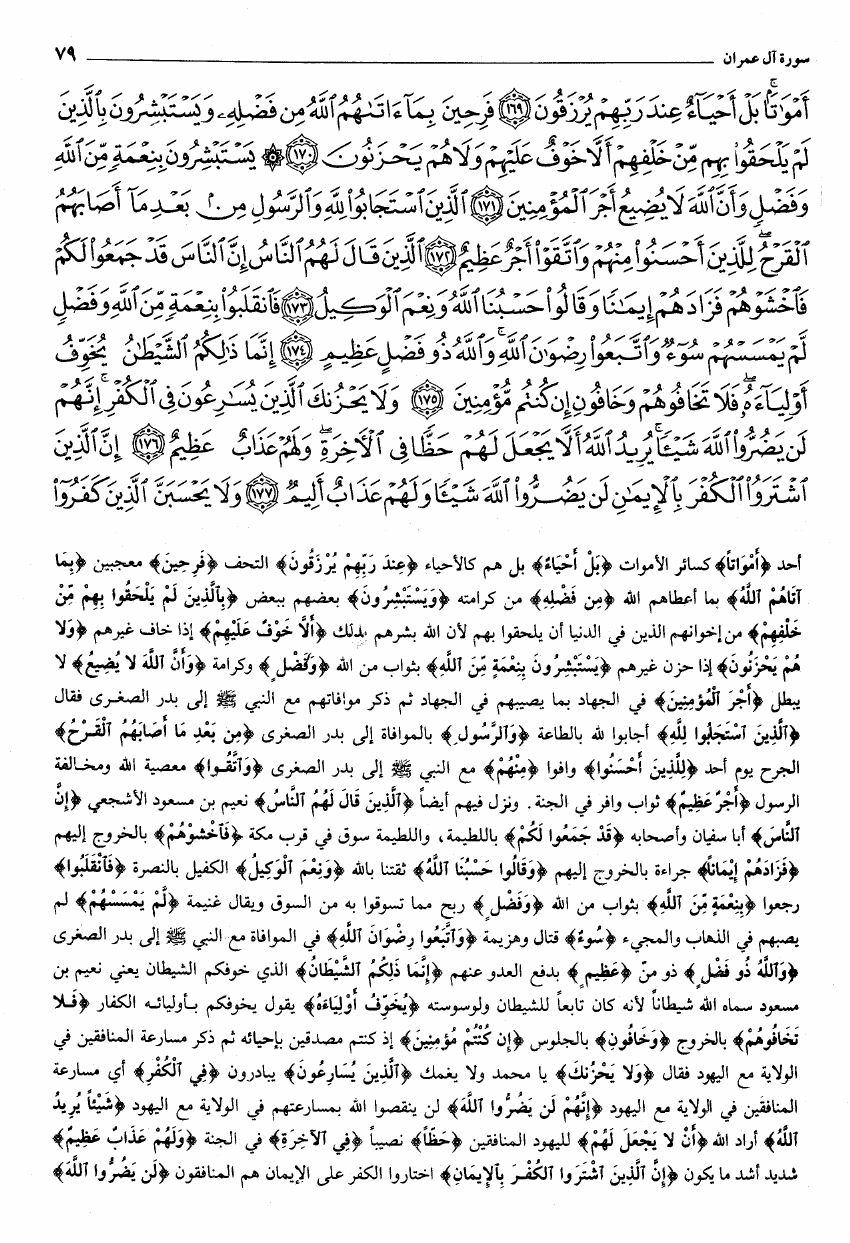 سورة آل عمران ٧٩
أَمْوَٰتًۢا ۚ بَلْ أَحْيَآءٌ عِندَ رَبِّهِمْ يُرْزَقُونَ ﴿١٦٩﴾ فَرِحِينَ بِمَآ ءَاتَىٰهُمُ ٱللَّهُ مِن فَضْلِهِۦ وَيَسْتَبْشِرُونَ بِٱلَّذِينَ
لَمْ يَلْحَقُوا۟ بِهِم مِّنْ خَلْفِهِمْ أَلَّا خَوْفٌ عَلَيْهِمْ وَلَا هُمْ يَحْزَنُونَ ﴿١٧٠﴾ ۞ يَسْتَبْشِرُونَ بِنِعْمَةٍ مِّنَ ٱللَّهِ
وَفَضْلٍ وَأَنَّ ٱللَّهَ لَا يُضِيعُ أَجْرَ ٱلْمُؤْمِنِينَ ﴿١٧١﴾ ٱلَّذِينَ ٱسْتَجَابُوا۟ لِلَّهِ وَٱلرَّسُولِ مِنۢ بَعْدِ مَآ أَصَابَهُمُ
ٱلْقَرْحُ ۚ لِلَّذِينَ أَحْسَنُوا۟ مِنْهُمْ وَٱتَّقَوْا۟ أَجْرٌ عَظِيمٌ ﴿١٧٢﴾ ٱلَّذِينَ قَالَ لَهُمُ ٱلنَّاسُ إِنَّ ٱلنَّاسَ قَدْ جَمَعُوا۟ لَكُمْ
فَٱخْشَوْهُمْ فَزَادَهُمْ إِيمَـٰنًا وَقَالُوا۟ حَسْبُنَا ٱللَّهُ وَنِعْمَ ٱلْوَكِيلُ ﴿١٧٣﴾ فَٱنقَلَبُوا۟ بِنِعْمَةٍ مِّنَ ٱللَّهِ وَفَضْلٍ
لَّمْ يَمْسَسْهُمْ سُوٓءٌ وَٱتَّبَعُوا۟ رِضْوَٰنَ ٱللَّهِ ۗ وَٱللَّهُ ذُو فَضْلٍ عَظِيمٍ ﴿١٧٤﴾ إِنَّمَا ذَٰلِكُمُ ٱلشَّيْطَـٰنُ يُخَوِّفُ
أَوْلِيَآءَهُۥ فَلَا تَخَافُوهُمْ وَخَافُونِ إِن كُنتُم مُّؤْمِنِينَ ﴿١٧٥﴾ وَلَا يَحْزُنكَ ٱلَّذِينَ يُسَـٰرِعُونَ فِى ٱلْكُفْرِ ۚ إِنَّهُمْ
لَن يَضُرُّوا۟ ٱللَّهَ شَيْـًٔا ۗ يُرِيدُ ٱللَّهُ أَلَّا يَجْعَلَ لَهُمْ حَظًّا فِى ٱلْـَٔاخِرَةِ ۖ وَلَهُمْ عَذَابٌ عَظِيمٌ ﴿١٧٦﴾ إِنَّ ٱلَّذِينَ
ٱشْتَرَوُا۟ ٱلْكُفْرَ بِٱلْإِيمَـٰنِ لَن يَضُرُّوا۟ ٱللَّهَ شَيْـًٔا وَلَهُمْ عَذَابٌ أَلِيمٌ ﴿١٧٧﴾ وَلَا يَحْسَبَنَّ ٱلَّذِينَ كَفَرُوٓا۟
أحد ﴿أَمْوَاتاً﴾ كسائر الأموات ﴿بَلْ أَحْيَاءٌ﴾ بل هم كالأحياء ﴿عِندَ رَبِّهِمْ يُرْزَقُونَ﴾ التحف ﴿فَرِحِينَ﴾ معجبين ﴿بِمَا
آتَاهُمُ ٱللَّهُ﴾ بما أعطاهم الله ﴿مِن فَضْلِهِ﴾ من كرامته ﴿وَيَسْتَبْشِرُونَ﴾ بعضهم ببعض ﴿بِٱلَّذِينَ لَمْ يَلْحَقُوا بِهِمْ مِّنْ
خَلْفِهِمْ﴾ من إخوانهم الذين في الدنيا أن يلحقوا بهم لأن الله بشرهم بذلك ﴿أَلاَّ خَوْفٌ عَلَيْهِمْ﴾ إذا خاف غيرهم ﴿وَلاَ
هُمْ يَحْزَنُونَ﴾ إذا حزن غيرهم ﴿يَسْتَبْشِرُونَ بِنِعْمَةٍ مِّنَ ٱللَّهِ﴾ بثواب من الله ﴿وَفَضْلٍ﴾ وكرامة ﴿وَأَنَّ ٱللَّهَ لاَ يُضِيعُ﴾ لا
يبطل ﴿أَجْرَ ٱلْمُؤْمِنِينَ﴾ في الجهاد بما يصيبهم في الجهاد ثم ذكر موافاتهم مع النبي ﷺ إلى بدر الصغرى فقال
﴿ٱلَّذِينَ ٱسْتَجَابُوا لِلَّهِ﴾ أجابوا لله بالطاعة ﴿وَٱلرَّسُولِ﴾ بالموافاة إلى بدر الصغرى ﴿مِن بَعْدِ مَا أَصَابَهُمُ ٱلْقَرْحُ﴾
الجرح يوم أحد ﴿لِلَّذِينَ أَحْسَنُوا﴾ وافوا ﴿مِنْهُمْ﴾ مع النبي ﷺ إلى بدر الصغرى ﴿وَٱتَّقَوا﴾ معصية الله ومخالفة
الرسول ﴿أَجْرٌ عَظِيمٌ﴾ ثواب وافر في الجنة. ونزل فيهم أيضاً ﴿ٱلَّذِينَ قَالَ لَهُمُ ٱلنَّاسُ﴾ نعيم بن مسعود الأشجعي ﴿إِنَّ
ٱلنَّاسَ﴾ أبا سفيان وأصحابه ﴿قَدْ جَمَعُوا لَكُمْ﴾ باللطيمة، واللطيمة سوق في قرب مكة ﴿فَٱخْشَوْهُمْ﴾ بالخروج إليهم
﴿فَزَادَهُمْ إِيمَاناً﴾ جراءة بالخروج إليهم ﴿وَقَالُوا حَسْبُنَا ٱللَّهُ﴾ ثقتنا بالله ﴿وَنِعْمَ ٱلْوَكِيلُ﴾ الكفيل بالنصرة ﴿فَٱنْقَلَبُوا﴾
رجعوا ﴿بِنِعْمَةٍ مِّنَ ٱللَّهِ﴾ بثواب من الله ﴿وَفَضْلٍ﴾ ربح مما تسوقوا به من السوق ويقال غنيمة ﴿لَّمْ يَمْسَسْهُمْ﴾ لم
يصبهم في الذهاب والمجيء ﴿سُوءٌ﴾ قتال وهزيمة ﴿وَٱتَّبَعُوا رِضْوَانَ ٱللَّهِ﴾ في الموافاة مع النبي ﷺ إلى بدر الصغرى
﴿وَٱللَّهُ ذُو فَضْلٍ﴾ ذو منّ ﴿عَظِيمٍ﴾ بدفع العدو عنهم ﴿إِنَّمَا ذَلِكُمُ ٱلشَّيْطَانُ﴾ الذي خوفكم الشيطان يعني نعيم بن
مسعود سماه الله شيطاناً لأنه كان تابعاً للشيطان ولوسوسته ﴿يُخَوِّفُ أَوْلِيَاءَهُ﴾ يقول يخوفكم بأوليائه الكفار ﴿فَلاَ
تَخَافُوهُمْ﴾ بالخروج ﴿وَخَافُونِ﴾ بالجلوس ﴿إِن كُنْتُمْ مُؤمِنِينَ﴾ إذ كنتم مصدقين بإحيائه ثم ذكر مسارعة المنافقين في
الولاية مع اليهود فقال ﴿وَلاَ يَحْزُنكَ﴾ يا محمد ولا يغمك ﴿ٱلَّذِينَ يُسَارِعُونَ﴾ يبادرون ﴿فِي ٱلْكُفْرِ﴾ أي مسارعة
المنافقين في الولاية مع اليهود ﴿إِنَّهُمْ لَن يَضُرُّوا ٱللَّهَ﴾ لن ينقصوا الله بمسارعتهم في الولاية مع اليهود ﴿شَيْئاً يُرِيدُ
ٱللَّهُ﴾ أراد الله ﴿أَنْ لاَ يَجْعَلَ لَهُمْ﴾ لليهود المنافقين ﴿حَظّاً﴾ نصيباً ﴿فِي ٱلآخِرَةِ﴾ في الجنة ﴿وَلَهُمْ عَذَابٌ عَظِيمٌ﴾
شديد أشد ما يكون ﴿إِنَّ ٱلَّذِينَ ٱشْتَرَوا ٱلْكُفْرَ بِٱلإِيمَانِ﴾ اختاروا الكفر على الإيمان هم المنافقون ﴿لَن يَضُرُّوا ٱللَّهَ﴾